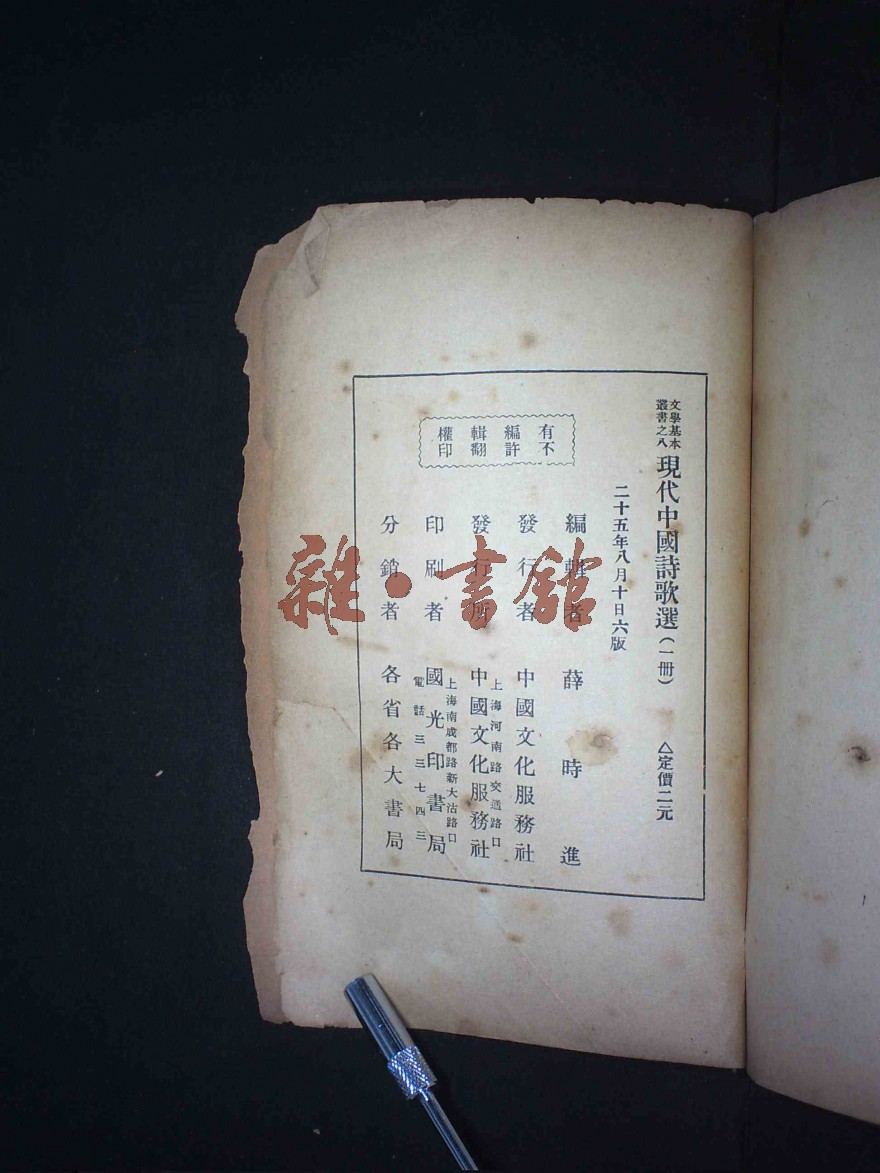 文學基本
叢書之八
現代中國詩歌選(一册)
△定價二元
二十五年八月十日六版
編輯者 薛時進
發行者 中國文化服務社
上海河南路交通路口
發行所 中國文化服務社
上海南成都路新大沽路口
印刷者 國光印書局
電話三三七四三
分銷者 各省各大書局
有編輯權
不許翻印
雜·書館